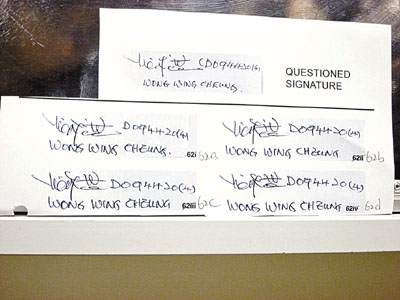 D094420(4)
WONG WING CHEUNG.
QUESTIONED
SIGNATURE
D094420(4)
WONG WING CHEUNG.
62i 62a
D094420(4)
WONG WING CHEUNG
62ii 62b
D094420(4)
WONG WING CHEUNG
62iii 62c
D094420(4)
WONG WING CHEUNG
62iv 62d